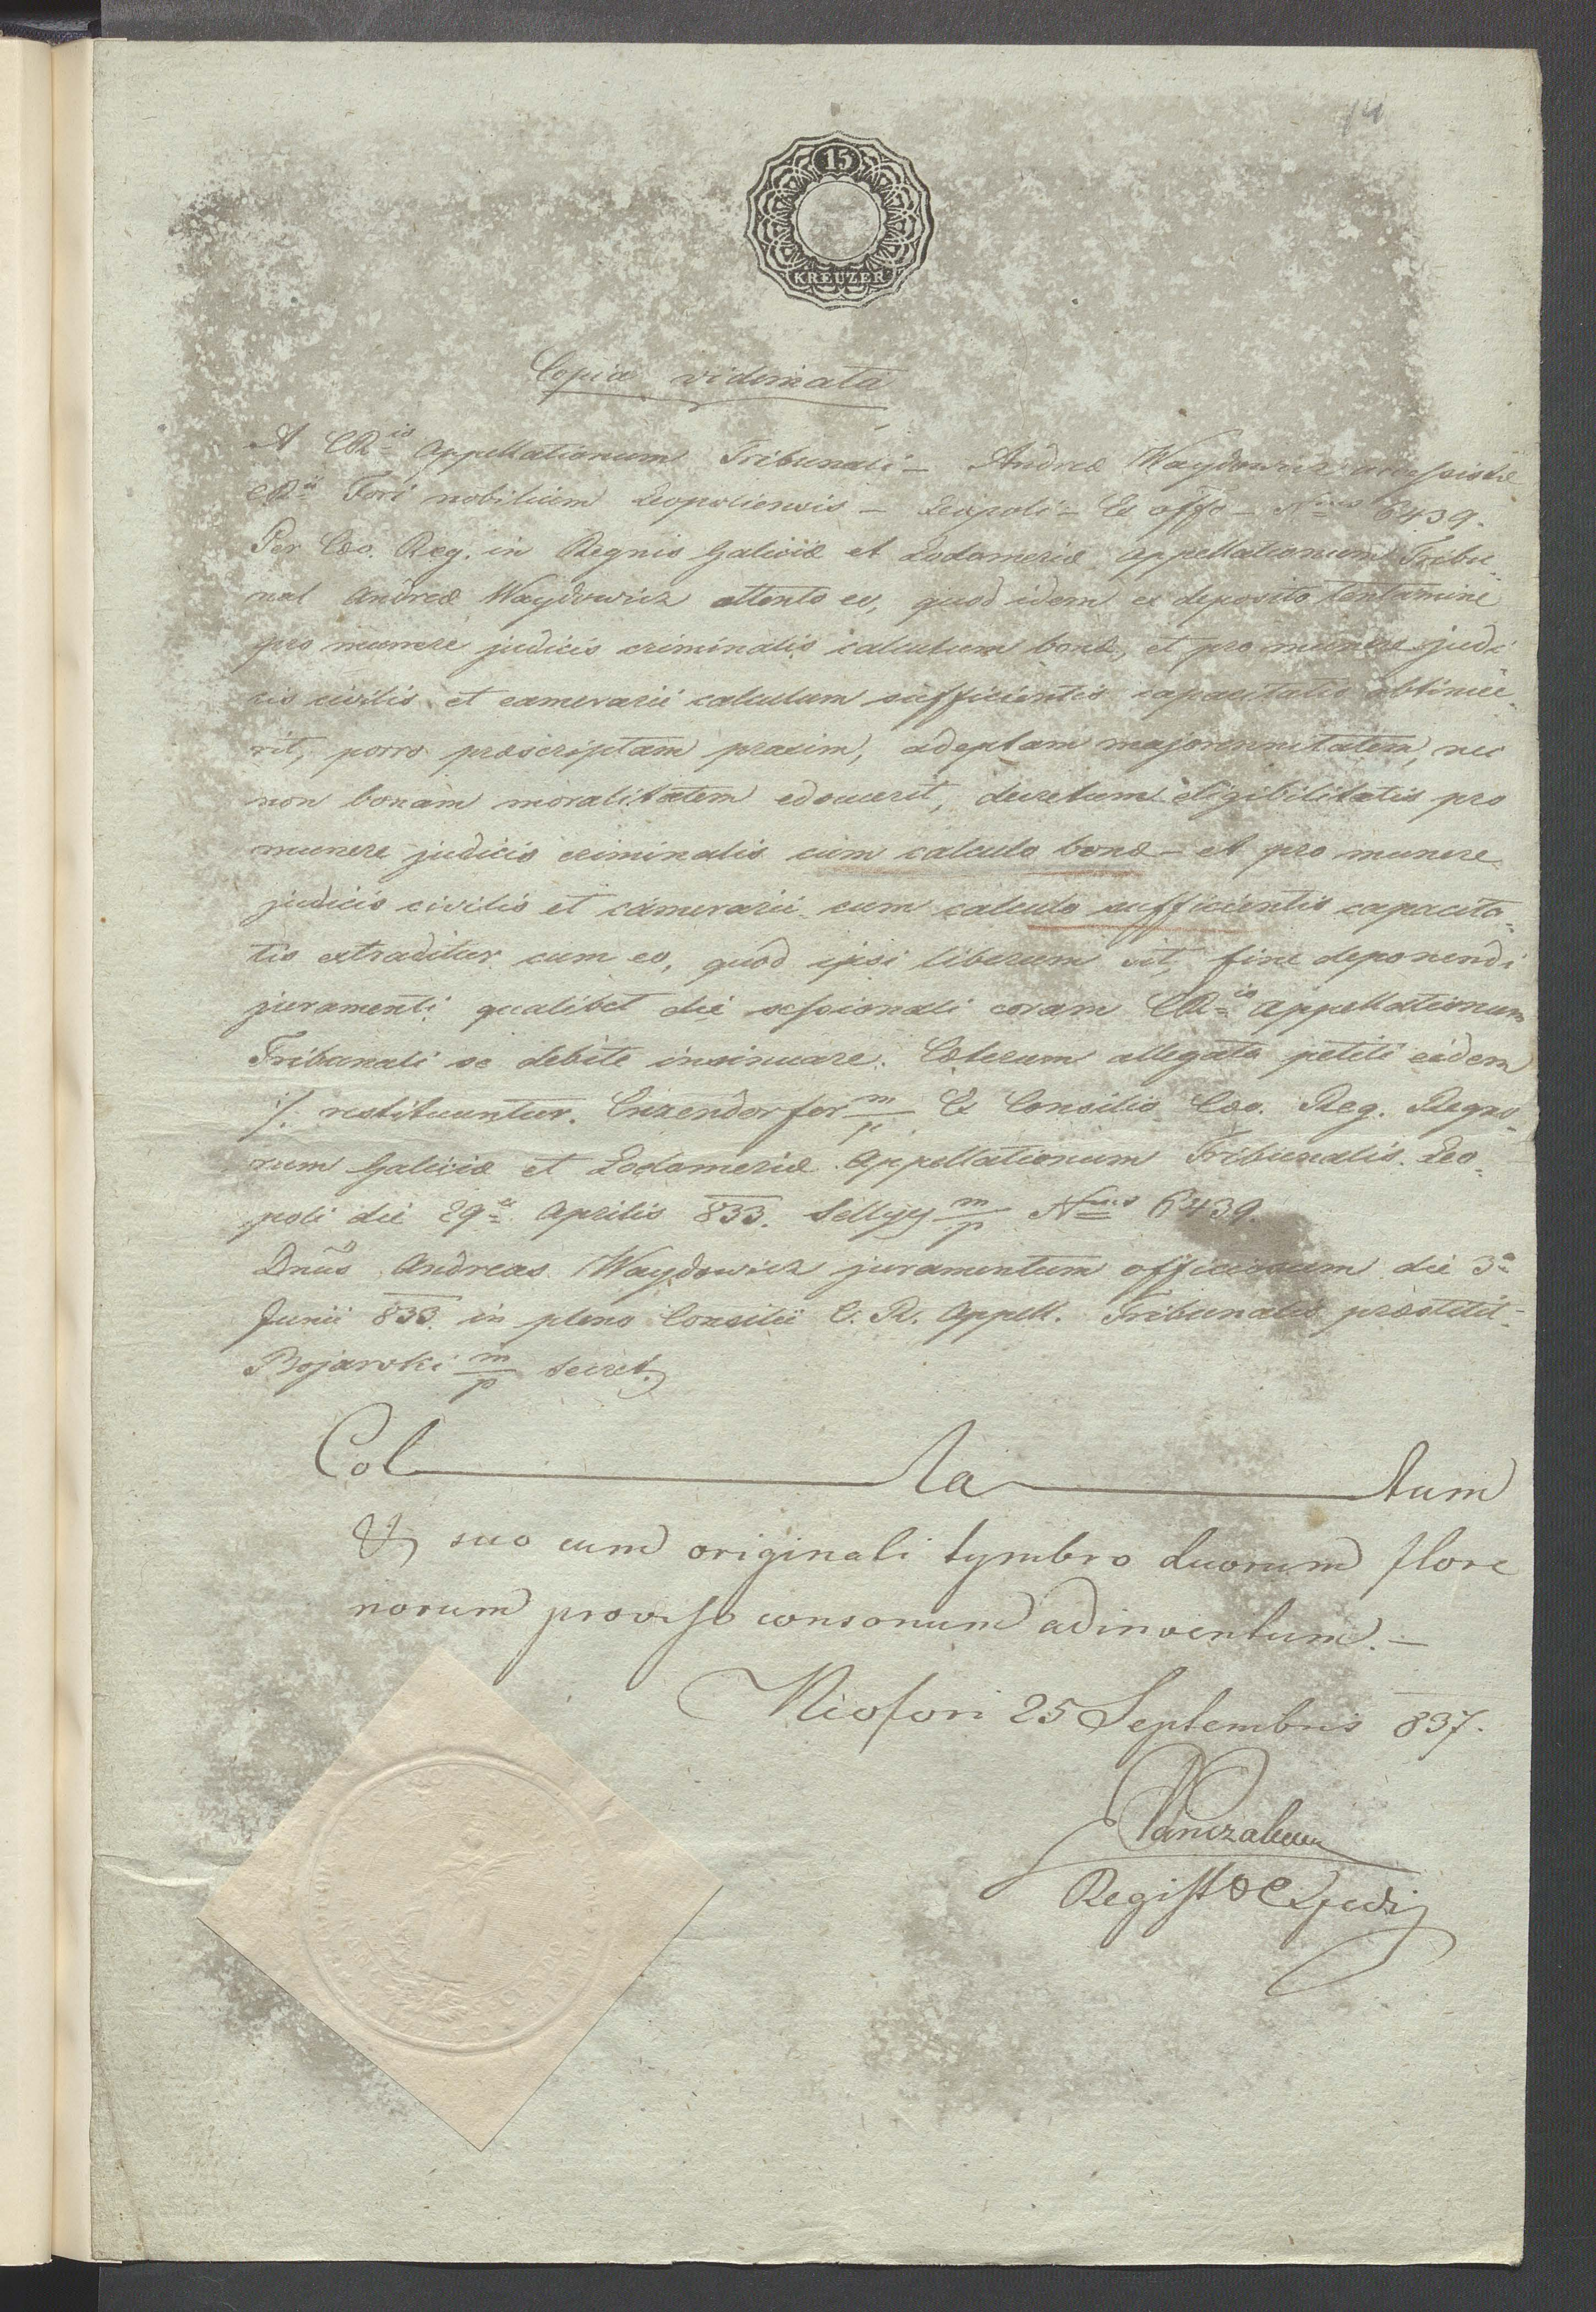 14
15
KREUZER
Copia vidimata
A CR=is Appellationum Tribunali – Andreæ Waydowicz accessistæ
CR=ii Fori nobilium Leopoliensis – Leopoli – Ex offo – N=rus 6439.
Per Cæo. Reg. in Regnis Galiciæ et Lodomeriæ Appellationum Tribu=
nal Andreæ Waydowicz attento eo, quod idem ex deposito tentamine
pro munere judicis criminalis calculum bonæ, et pro munere judi
cis civilis et camerarii calculum sufficientis capacitatis obtinue=
rit, porro præscriptam praxim, adeptam majorennitatem, nec
non bonam moralitatem edocuerit, decretum eligibilitatis pro
munere judicis criminalis cum calculo bonæ – et pro munere
judicis civilis et camerarii cum calculo sufficientis capacita=
tis extraditur cum eo, quod ipsi liberum sit, fine deponendi
juramenti qualibet die sessionali coram CR=is Appellationum
Tribunali se debite insinuare. Cæterum allegata petiti eidem
/. restituuntur. Enzendorfer m/p Ex Consilio Cæo. Reg. Regno=
rum Galiciæ et Lodomeriæ Appellationum Tribunalis. Leo=
poli die 29=a Aprilis 833. Sellyey m/p N=rus 6439.
Dnūs Andreas Waydowicz juramentum officiosum die 3=a
Junii 833 in pleno Consilii C. R. Appell. Tribunalis præstitit –
Bojarski m/p Secret.
Col la tum
Et suo cum originali tymbro duorum flore
norum proviso consonum adinventum. –
Niofori 25 Septembris 837.
Regist & Expedi